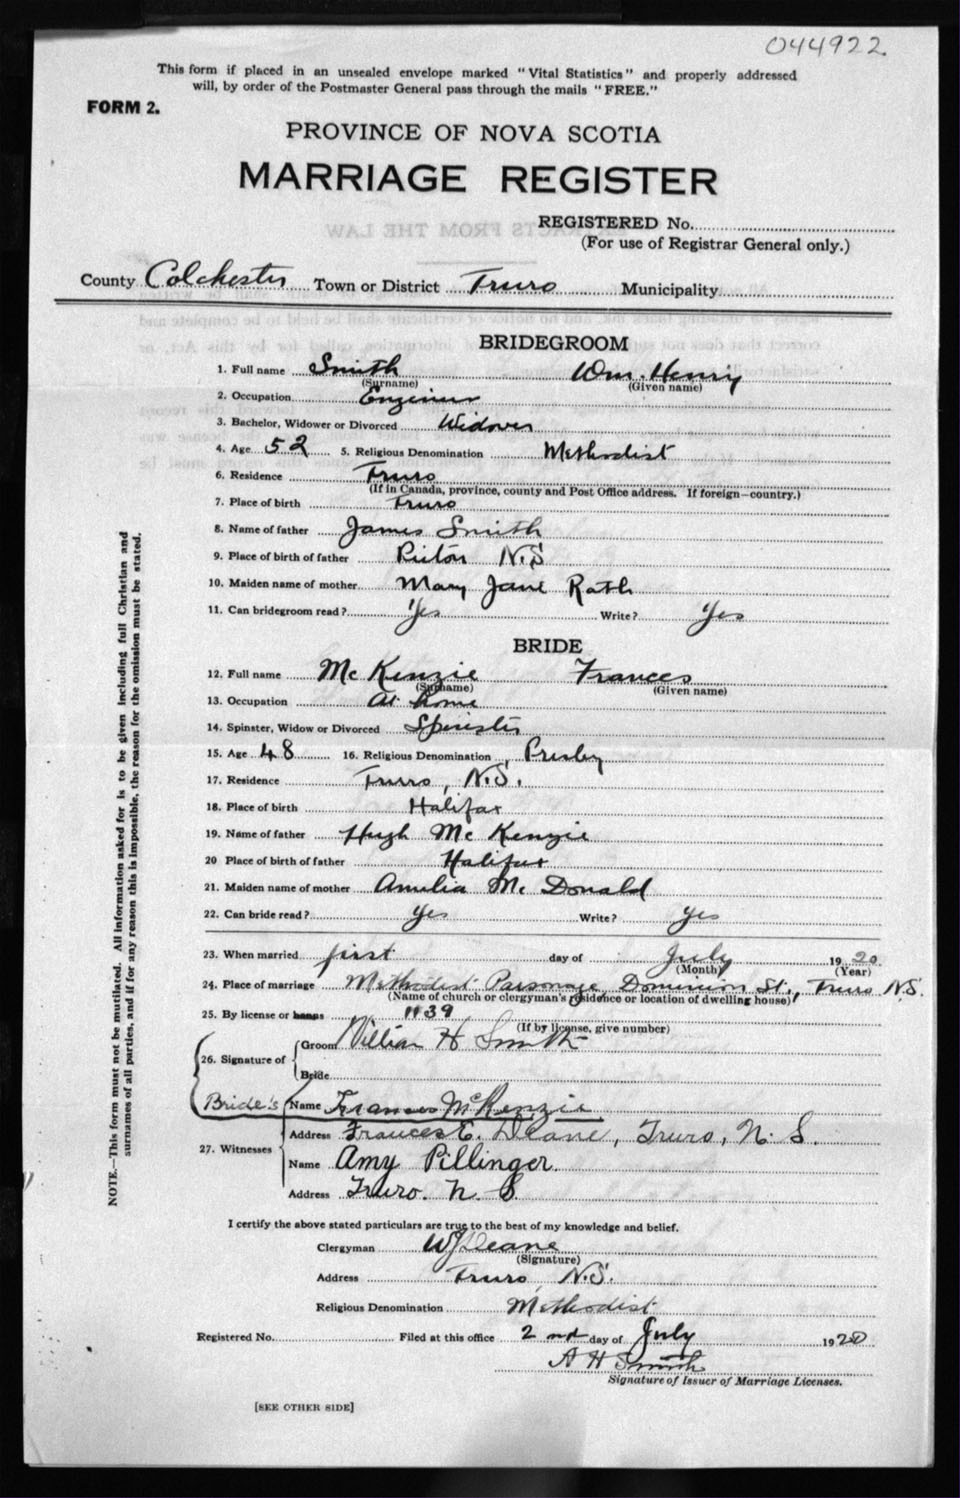 044922
This form if placed in an unsealed envelope marked "Vital Statistics" and properly addressed
will, by order of the Postmaster General pass through the mails "FREE."
FORM 2.
PROVINCE OF NOVA SCOTIA
MARRIAGE REGISTER
REGISTERED No.
(For use of Registrar General only.)
County Colchester Town or District Truro Municipality
BRIDEGROOM
1. Full name Smith Wm. Henry
(Surname) (Given name)
2. Occupation Engineer
3. Bachelor, Widower or Divorced Widower
4. Age 52 5. Religious Denomination Methodist
6. Residence Truro
(If in Canada, province, county and Post Office address. If foreign—country.)
7. Place of birth Truro
8. Name of father James Smith
9. Place of birth of father Pictou N.S
10. Maiden name of mother Mary Jane Rath
11. Can bridegroom read? Yes Write? Yes
BRIDE
12. Full name McKenzie Frances
(Surname) (Given name)
13. Occupation At home
14. Spinster, Widow or Divorced Spinster
15. Age 48 16. Religious Denomination Presby
17. Residence Truro, N.S.
18. Place of birth Halifax
19. Name of father Hugh McKenzie
20 Place of birth of father Halifax
21. Maiden name of mother Amelia McDonald
22. Can bride read? Yes Write? Yes
23. When married first day of July 1920
(Month) (Year)
24. Place of marriage Methodist Parsonage, Dominion St., Truro N.S.
(Name of church or clergyman's residence or location of dwelling house)
25. By license or banns 1139
(If by license, give number)
26. Signature of Groom William H Smith
Bride
Bride's Name Frances McKenzie
27. Witnesses Address Frances E. Deane, Truro, N. S.
Name Amy Pillinger.
Address Truro. N. S
I certify the above stated particulars are true to the best of my knowledge and belief.
Clergyman WJ Deane
(Signature)
Address Truro, N.S.
Religious Denomination Methodist
Registered No. Filed at this office 2nd day of July 1920
A H Smith
Signature of Issuer of Marriage Licenses.
[SEE OTHER SIDE]
NOTE.—This form must not be mutilated. All information asked for is to be given including full Christian and
surnames of all parties, and if for any reason this is impossible, the reason for the omission must be stated.